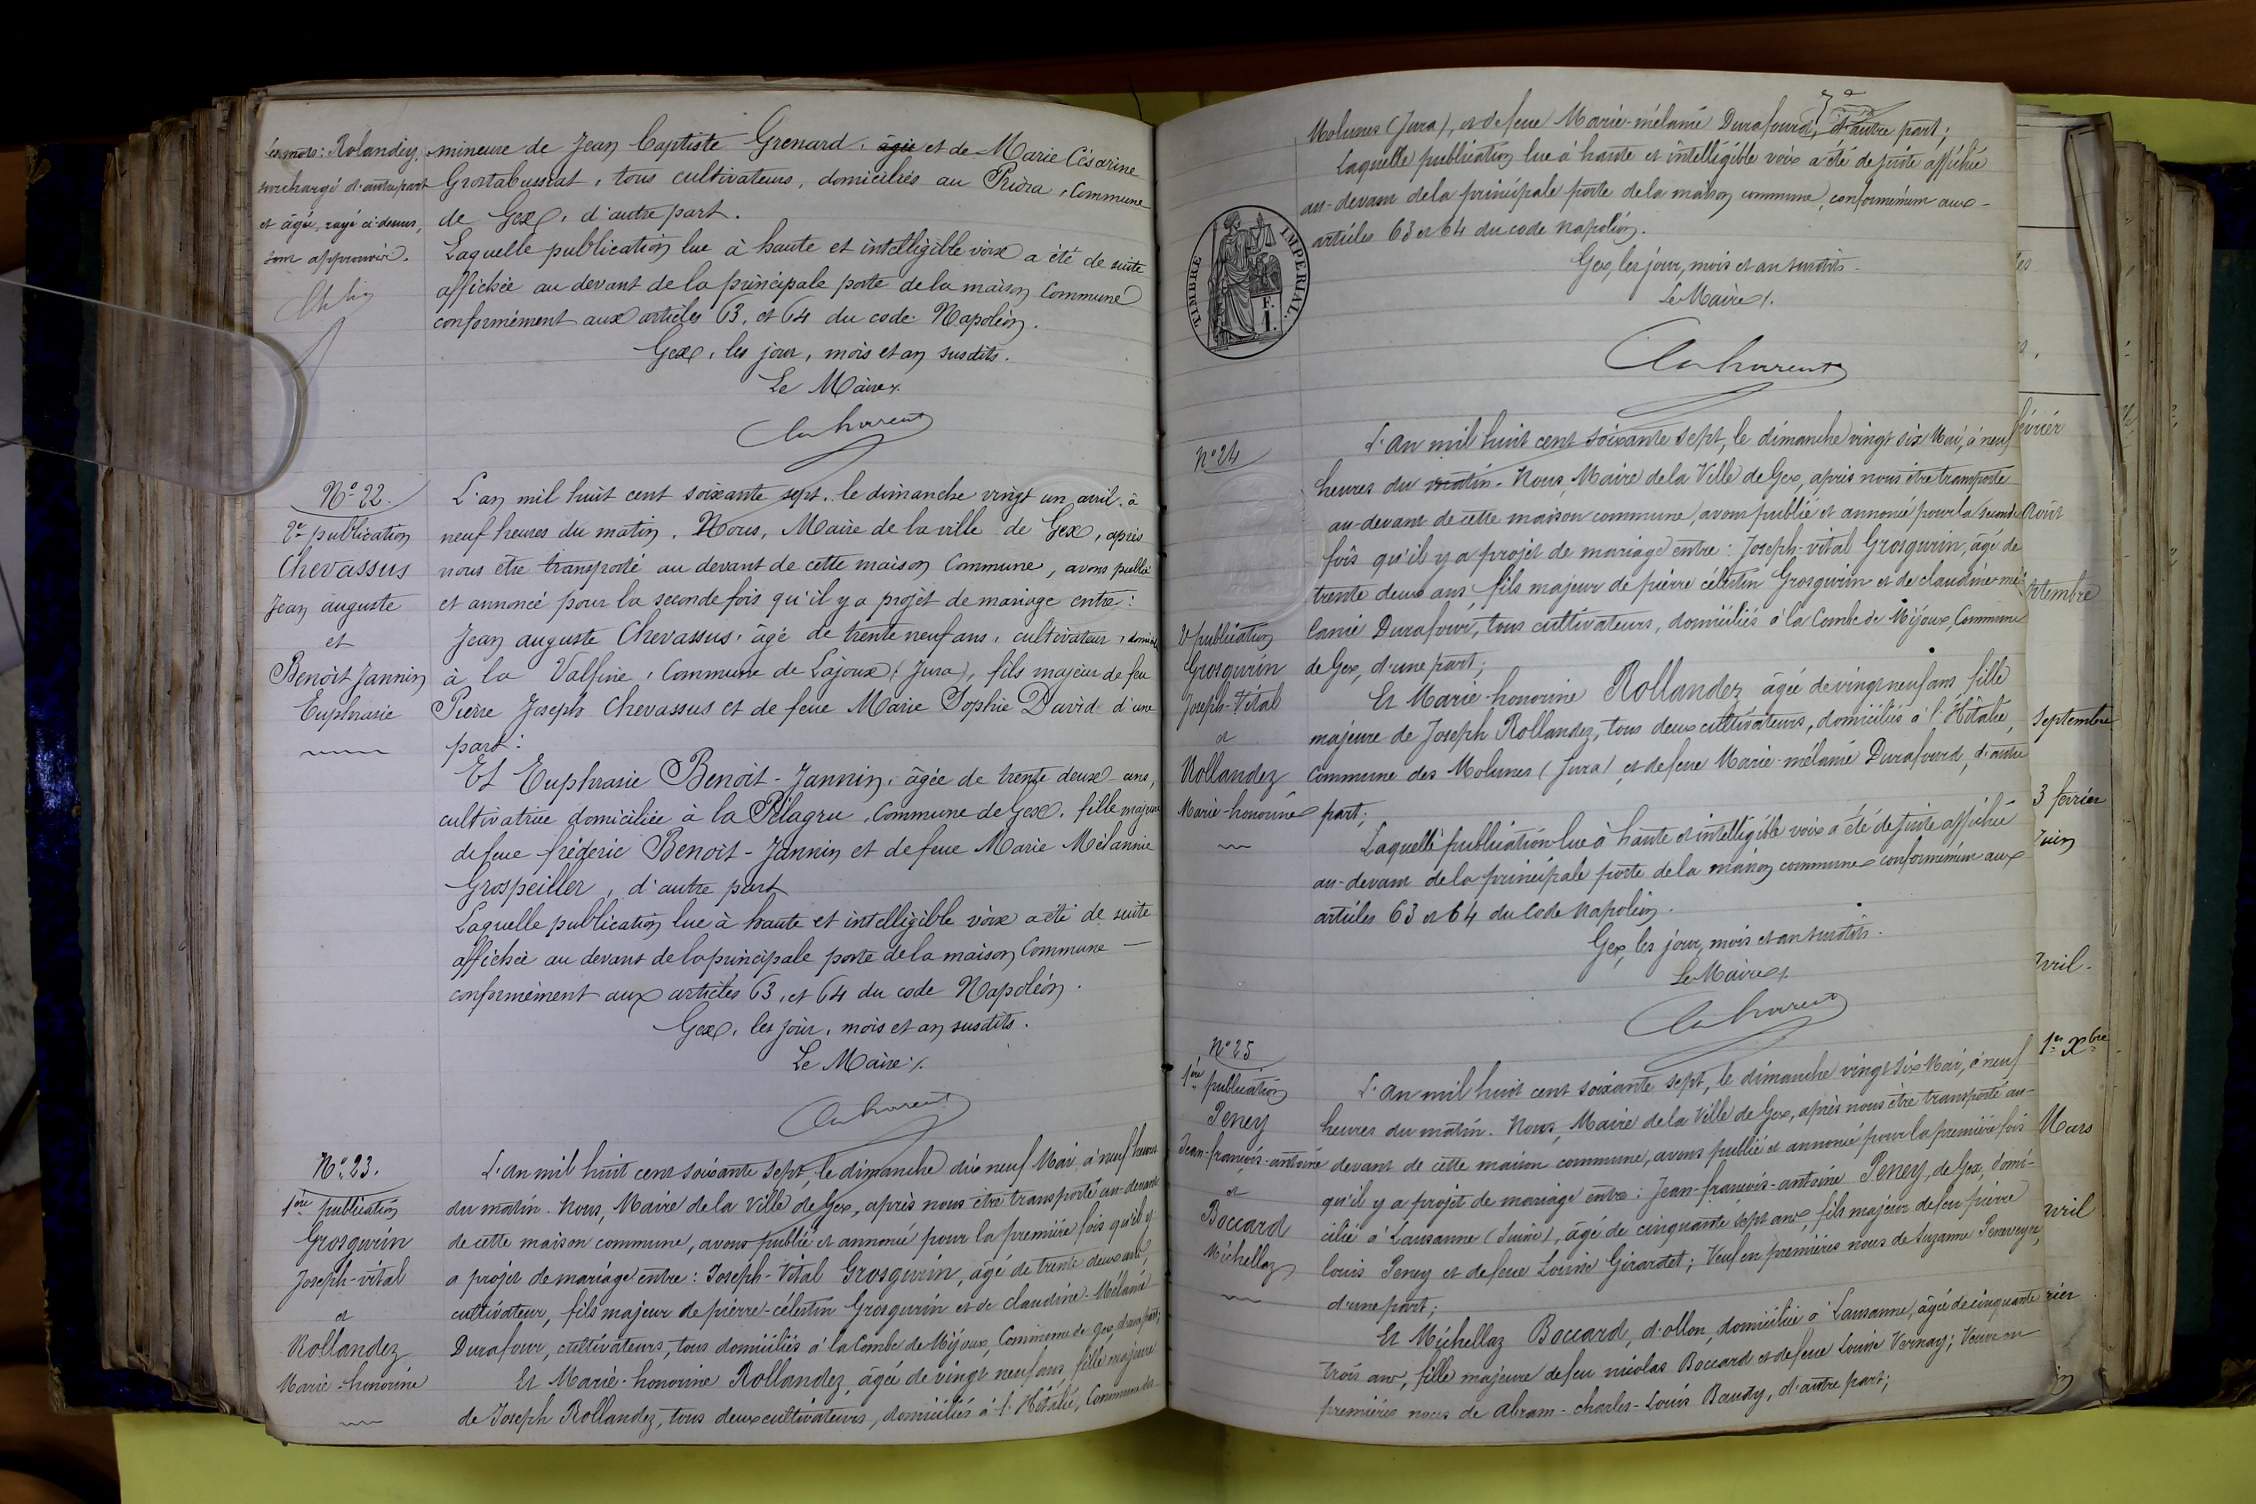 Les mots: Rolandez,
surchargé d'autre part
et âgée, rayé ci-dessus,
sont approuvés.
mineure de Jean Baptiste Grenard, âgée et de Marie Césarine
Grostabussiat, tous cultivateurs, domiciliés au Prióra, Commune
de Gex, d'autre part.
Laquelle publication lue à haute et intelligible voix a été de suite
affichée au devant de la principale porte de la maison Commune
conformément aux articles 63, et 64 du code Napoléon.
Gex, les jour, mois et an susdits.
Le Maire
N° 22.
2e publication
Chevassus
Jean auguste
et
Benoit Jannin
Euphrasie
L'an mil huit cent soixante sept, le dimanche vingt un avril, à
neuf heures du matin, Nous, Maire de la ville de Gex, après
nous être transporté au devant de cette maison Commune, avons publié
et annoncé pour la seconde fois qu'il y a projet de mariage entre:
Jean auguste Chevassus, âgé de trente neuf ans, cultivateur, domicilié
à la Valfine, Commune de Lajoux (Jura), fils majeur de feu
Pierre Joseph Chevassus et de feue Marie Sophie David d'une
part:
Et Euphrasie Benoit-Jannin, âgée de trente deux ans,
cultivatrice domiciliée à la Pélagru, Commune de Gex, fille majeure
de feue fréderic Benoit-Jannin et de feue Marie Mélannie
Grospeiller, d'autre part
Laquelle publication lue à haute et intelligible voix a été de suite
affichée au devant de la principale porte de la maison Commune
conformément aux articles 63, et 64 du code Napoléon.
Gex, les jour, mois et an susdits.
Le Maire
N° 23.
1ère publication
Grosgurin
Joseph-vital
et
Rollandez
Marie-honorine
L'an mil huit cent soixante sept, le dimanche dix neuf Mai, à neuf heures
du matin. Nous, Maire de la Ville de Gex, après nous être transporté au-devant
de cette maison commune, avons publié et annoncé pour la première fois qu'il y
a projet de mariage entre: Joseph-Vital Grosgurin, âgé de trente deux ans,
cultivateur, fils majeur de pierre-célestin Grosgurin et de claudine-Mélanie
Durafour, cultivateurs, tous domiciliés à la Combe de Mijoux, Commune de Gex, d'une part;
Et Marie-honorine Rollandez, âgée de vingt neuf ans, fille majeure
de Joseph Rollandez, tous deux cultivateurs, domiciliés à l'Hitalie, Commune des
Molunes (Jura), et de feue Marie-mélanie Durafourd, d'autre part;
Laquelle publication lue à haute et intelligible voix a été de suite affichée
au-devant de la principale porte de la maison commune, conformément aux
articles 63 et 64 du code napoléon.
Gex, les jour, mois et an susdits.
Le Maire
TIMBRE IMPERIAL.
F.
1.
N° 24
2e publication
Grosgurin
Joseph-Vital
et
Rollandez
Marie-honorine
L'an mil huit cent soixante sept, le dimanche vingt six Mai, à neuf
heures du matin. Nous, Maire de la Ville de Gex, après nous être transporté
au-devant de cette maison commune, avons publié et annoncé pour la seconde
fois qu'il y a projet de mariage entre: Joseph-vital Grosgurin, âgé de
trente deux ans, fils majeur de pierre célestin Grosgurin et de claudine mé-
lanie Durafour, tous cultivateurs, domiciliés à la Combe de Mijoux, Commune
de Gex, d'une part;
Et Marie-honorine Rollandez âgée de vingt neuf ans fille
majeure de Joseph Rollandez, tous deux cultivateurs, domiciliés à l'Hitalie,
Commune des Molunes (Jura) et de feue Marie-mélanie Durafourd, d'autre
part;
Laquelle publication lue à haute et intelligible voix a été de suite affichée
au-devant de la principale porte de la maison commune conformément aux
articles 63 et 64 du Code Napoléon.
Gex, les jour, mois et an susdits.
Le Maire
N° 25
1ère publication
Peney
Jean-françois-antoine
et
Boccard
Michellaz
L'an mil huit cent soixante sept, le dimanche vingt six Mai, à neuf
heures du matin. Nous, Maire de la Ville de Gex, après nous être transporté au-
devant de cette maison commune, avons publié et annoncé pour la première fois
qu'il y a projet de mariage entre: Jean-françois-antoine Peney, de Gex, domi-
cilié à Lausanne (Suisse), âgé de cinquante sept ans, fils majeur de feu pierre
louis Peney et de feue Louise Girardet; Veuf en premières noces de Suzanne
d'une part;
Et Michellaz Boccard, d'ollon, domiciliée à Lausanne, âgée de cinquante
trois ans, fille majeure de feu nicolas Boccard et de feue Louise Vernay; Veuve en
premières noces de Abram-charles-Louis Baudy, d'autre part;
février
Août
septembre
3 février
Juin
avril.
1er Xbre
Mars
avril